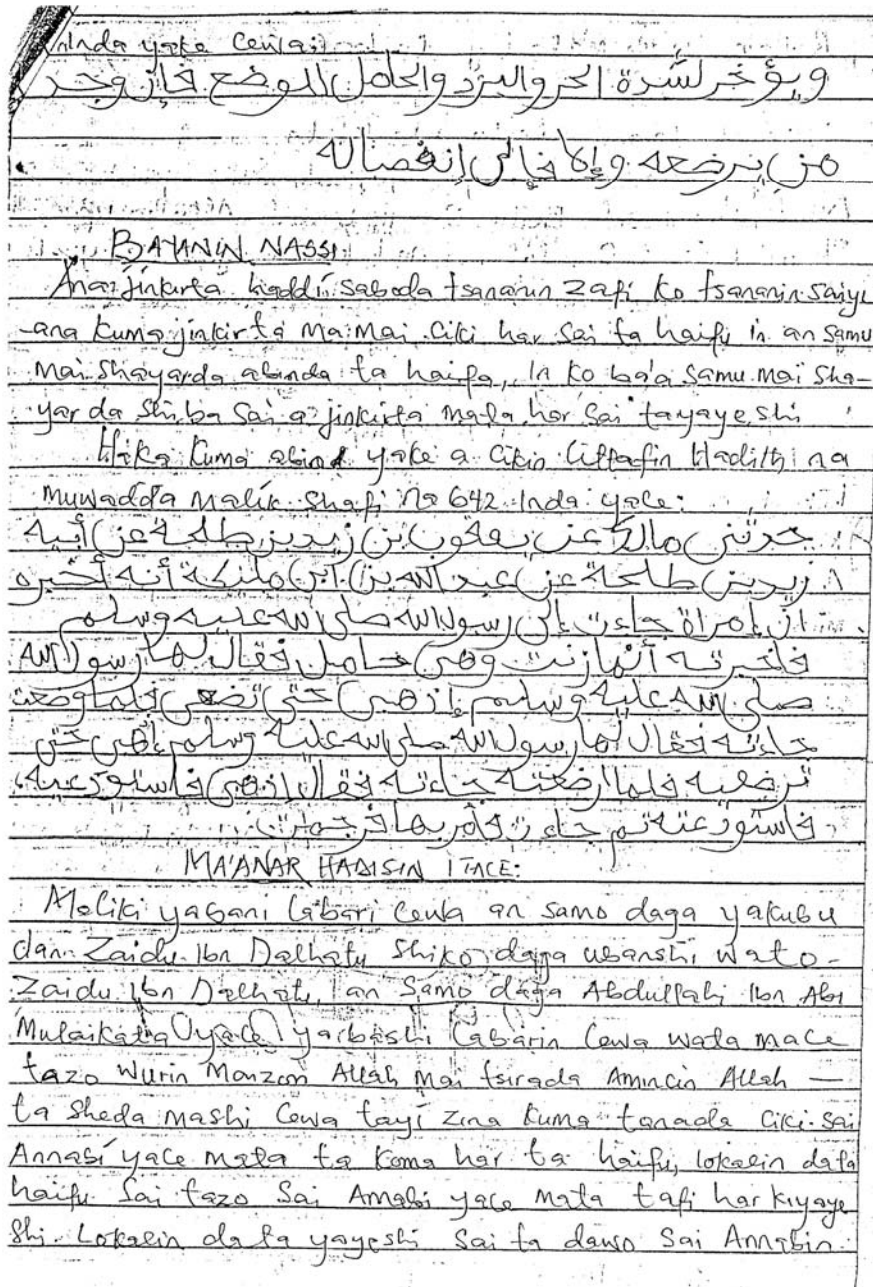 inda yake cewa:
ويؤخر لشدة الحر والبرد والحامل للوضع فإن وجد
من يرضعه وإلا فإلى إنفصاله
BAYANIN NASSI
Ana jinkirta haddi saboda tsananin zafi ko tsananin sanyi
-ana kuma jinkirta ma mai ciki har sai ta haifu in an samu
mai shayarda abinda ta haifa, in ko ba'a samu mai sha-
yar da shi ba sai a jinkirta mata har sai ta yaye shi
Haka kuma abind yake a cikin littafin Hadithi na
muwadda malik shafi na 642 Inda yace:
حدثني مالك عن يعقوب بن زيد بن طلحة عن أبيه
زيد بن طلحة عن عبد الله بن ابي مليكة أنه أخبره
ان إمراة جاءت إلى رسول الله صلى الله عليه وسلم
فاخبرته أنها زنت وهي حامل فقال لها رسول الله
صلى الله عليه وسلم إذهبي حتى تضعي فلما وضعت
جاءته فقال لها رسول الله صلى الله عليه وسلم إذهبي حتى
ترضعيه فلما ارضعته جاءته فقال إذهبي فاستودعيه
فاستودعته ثم جاءت فأمر بها فرجمت
MA'ANAR HADISIN ITACE:
Maliki yabani labari cewa an samo daga yakubu
dan Zaidu Ibn Dalhatu shiko daga ubanshi wato-
Zaidu Ibn Dalhatu, an samo daga Abdullahi Ibn Abi
Mulaikata yace ya bashi labarin cewa wata mace
tazo wurin Manzon Allah mai tsirada Amincin Allah —
ta sheda mashi cewa tayi zina kuma tanada ciki sai
Annabi yace mata ta koma har ta haifu, lokacin data
haifu sai tazo sai Annabi yace mata tafi har kiyaye
shi. Lokacin data yayeshi sai ta dawo sai Annabin